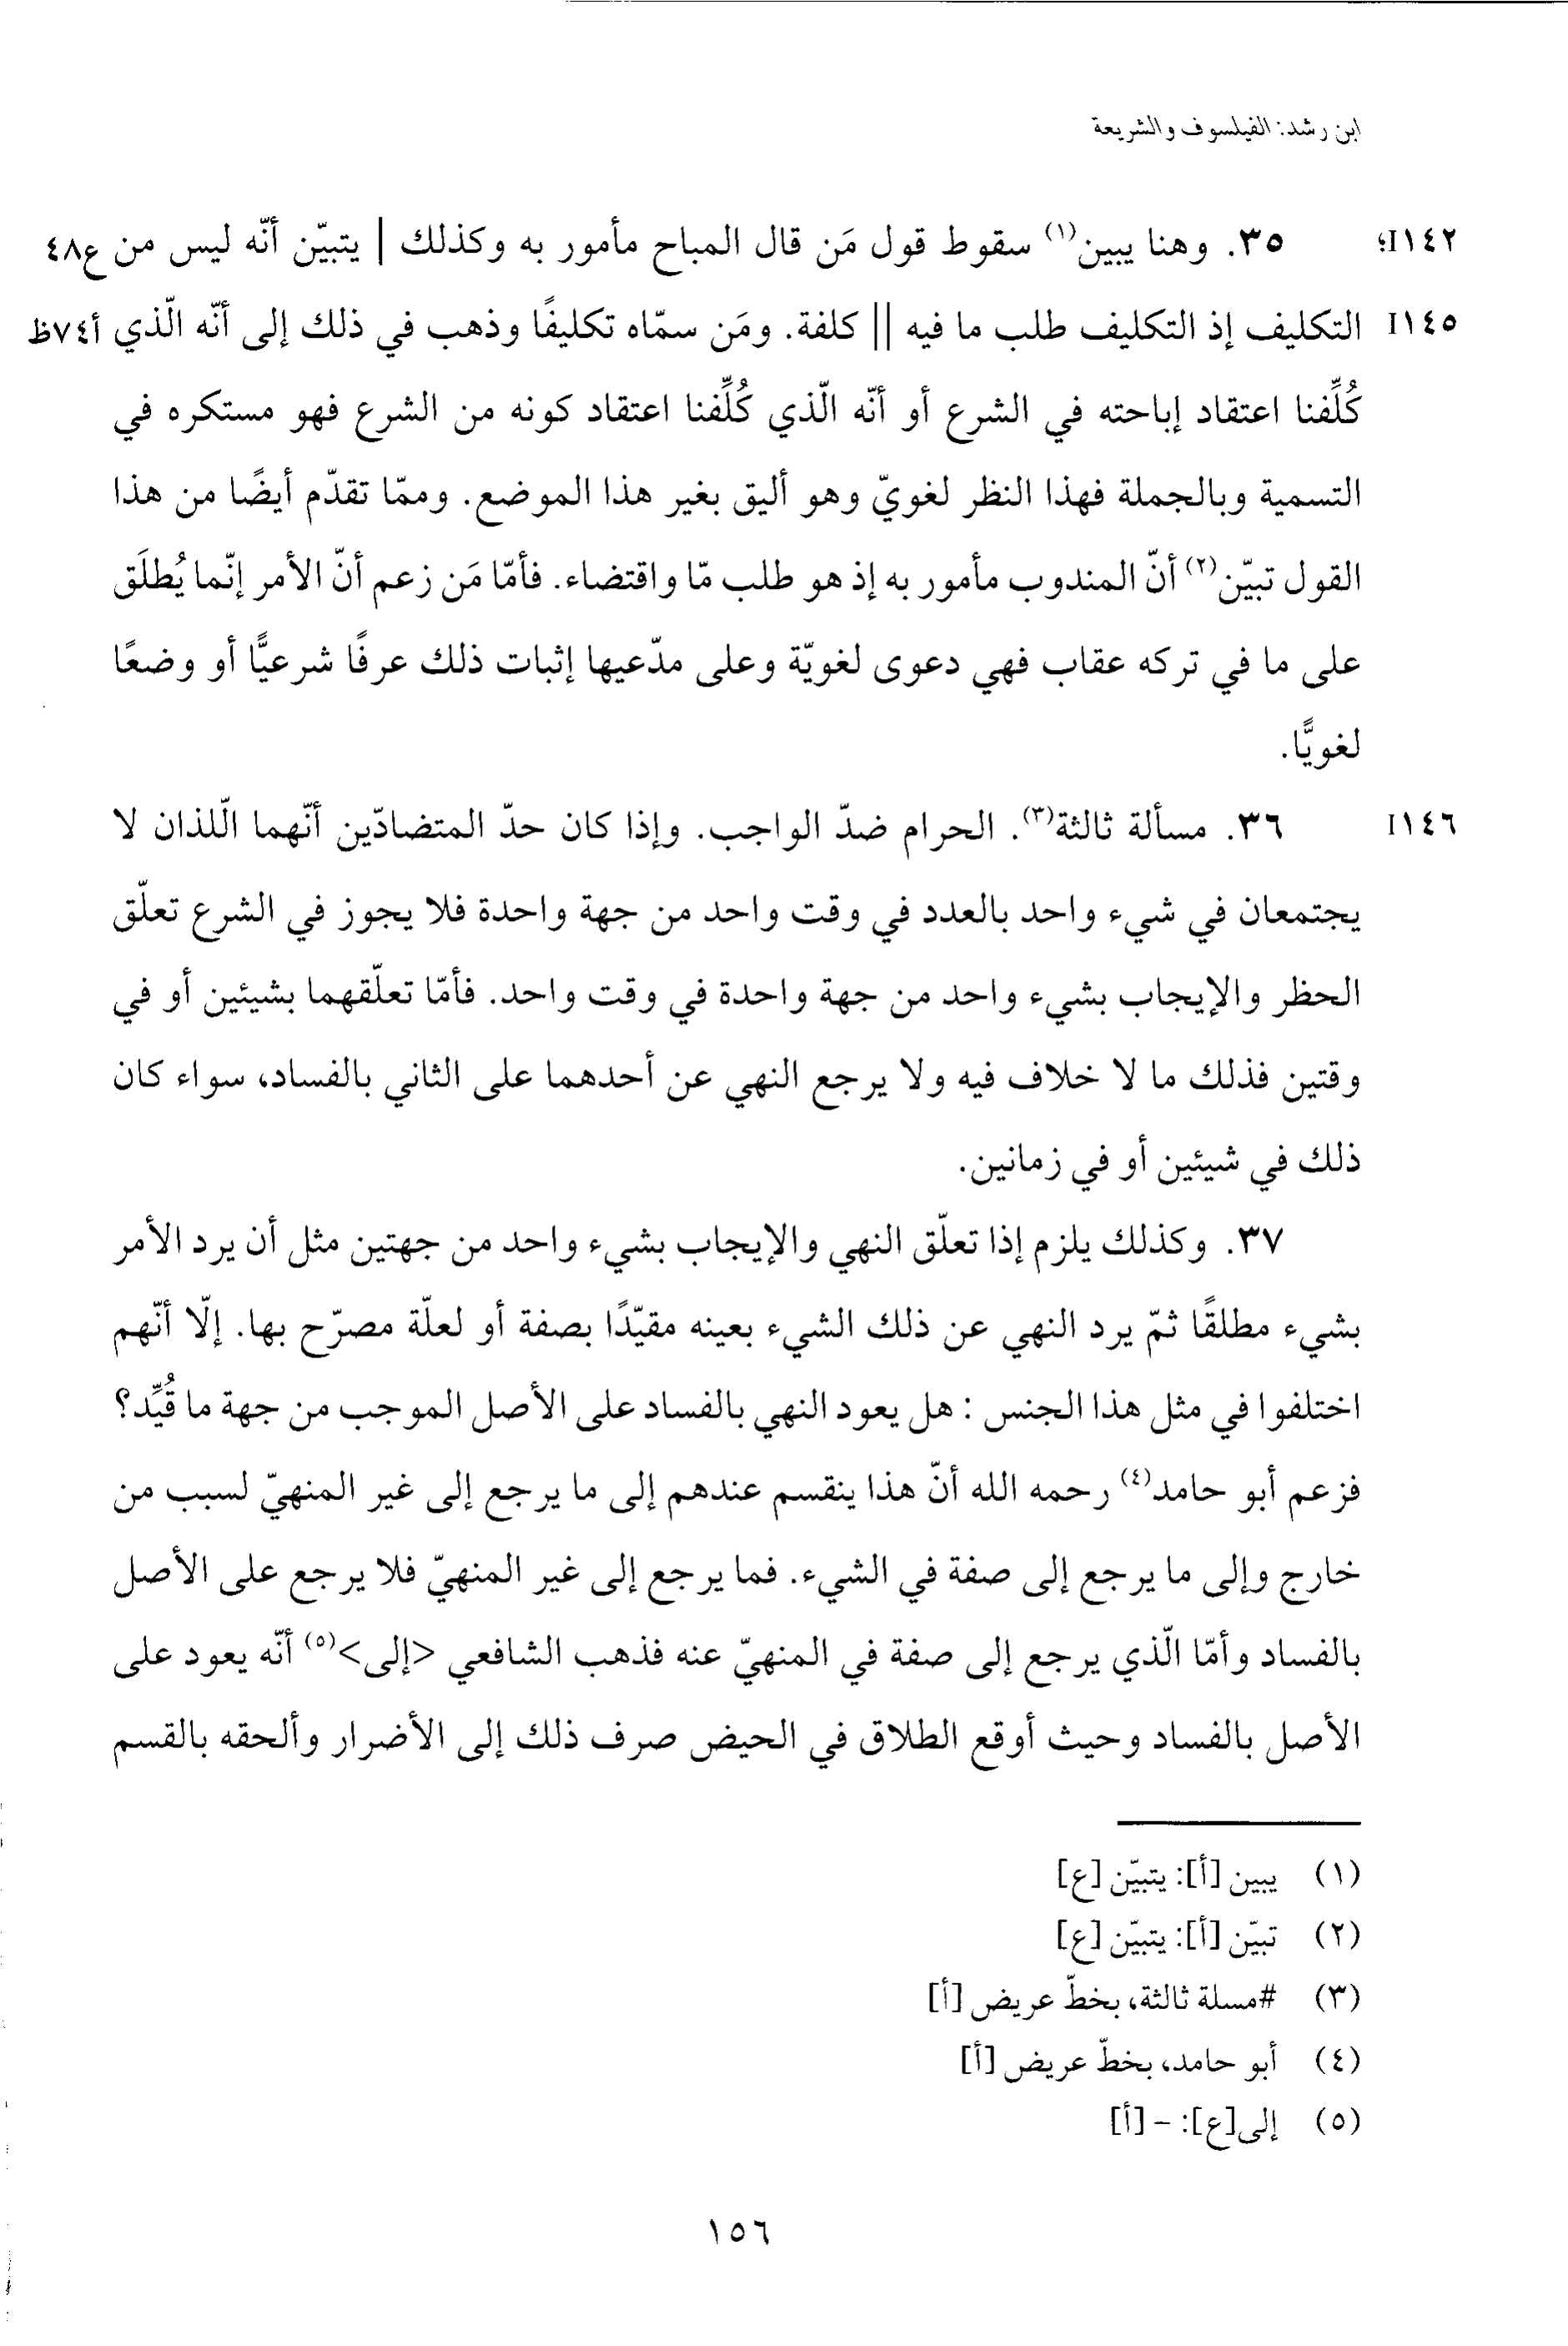 ابن رشد: الفيلسوف والشريعة
I١٤٢؛ ٣٥. وهنا يبين(١) سقوط قول مَن قال المباح مأمور به وكذلك | يتبيّن أنّه ليس من ع٤٨
I١٤٥ التكليف إذ التكليف طلب ما فيه || كلفة. ومَن سمّاه تكليفًا وذهب في ذلك إلى أنّه الّذي أ٧٤ظ
كُلِّفنا اعتقاد إباحته في الشرع أو أنّه الّذي كُلِّفنا اعتقاد كونه من الشرع فهو مستكره في
التسمية وبالجملة فهذا النظر لغويّ وهو أليق بغير هذا الموضع. وممّا تقدّم أيضًا من هذا
القول تبيّن(٢) أنّ المندوب مأمور به إذ هو طلب مّا واقتضاء. فأمّا مَن زعم أنّ الأمر إنّما يُطلَق
على ما في تركه عقاب فهي دعوى لغويّة وعلى مدّعيها إثبات ذلك عرفًا شرعيًّا أو وضعًا
لغويًّا.
I١٤٦ ٣٦. مسألة ثالثة(٣). الحرام ضدّ الواجب. وإذا كان حدّ المتضادّين أنّهما الّلذان لا
يجتمعان في شيء واحد بالعدد في وقت واحد من جهة واحدة فلا يجوز في الشرع تعلّق
الحظر والإيجاب بشيء واحد من جهة واحدة في وقت واحد. فأمّا تعلّقهما بشيئين أو في
وقتين فذلك ما لا خلاف فيه ولا يرجع النهي عن أحدهما على الثاني بالفساد، سواء كان
ذلك في شيئين أو في زمانين.
٣٧. وكذلك يلزم إذا تعلّق النهي والإيجاب بشيء واحد من جهتين مثل أن يرد الأمر
بشيء مطلقًا ثمّ يرد النهي عن ذلك الشيء بعينه مقيّدًا بصفة أو لعلّة مصرّح بها. إلّا أنّهم
اختلفوا في مثل هذا الجنس : هل يعود النهي بالفساد على الأصل الموجب من جهة ما قُيِّد؟
فزعم أبو حامد(٤) رحمه الله أنّ هذا ينقسم عندهم إلى ما يرجع إلى غير المنهيّ لسبب من
خارج وإلى ما يرجع إلى صفة في الشيء. فما يرجع إلى غير المنهيّ فلا يرجع على الأصل
بالفساد وأمّا الّذي يرجع إلى صفة في المنهيّ عنه فذهب الشافعي <إلى>(٥) أنّه يعود على
الأصل بالفساد وحيث أوقع الطلاق في الحيض صرف ذلك إلى الأضرار وألحقه بالقسم
(١) يبين [أ]: يتبيّن [ع]
(٢) تبيّن [أ]: يتبيّن [ع]
(٣) #مسلة ثالثة، بخطّ عريض [أ]
(٤) أبو حامد، بخطّ عريض [أ]
(٥) إلى[ع]: - [أ]
١٥٦